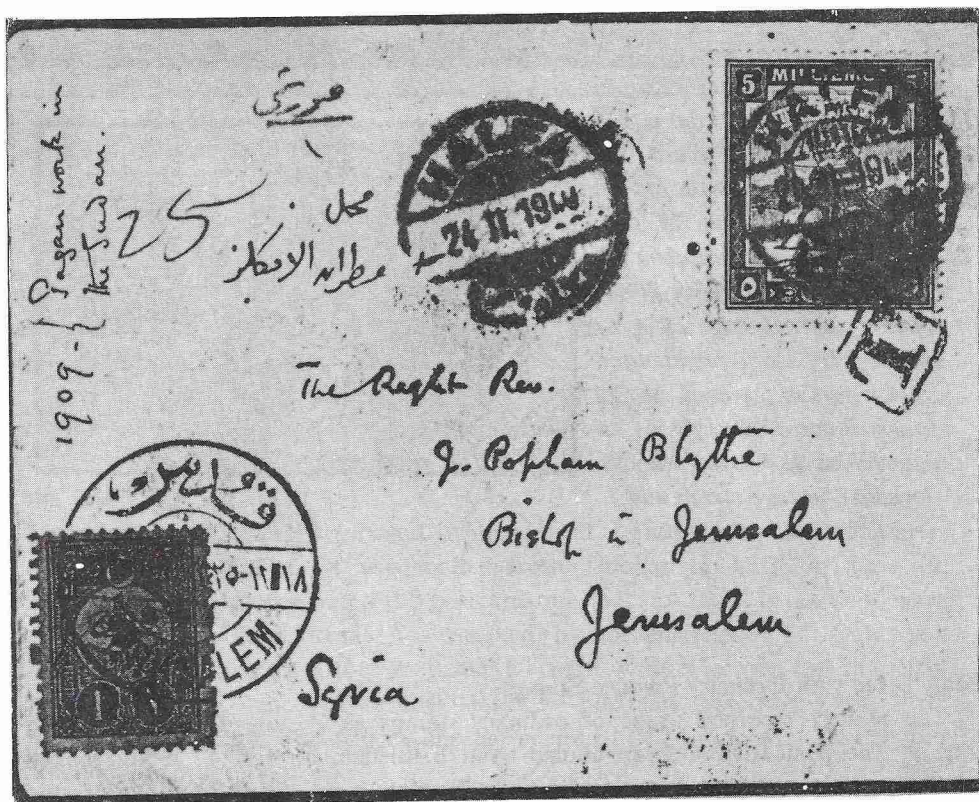 1909 - { Pagan work in
the Sudan.
25
محل
مطران الانكليز
HALFA
24 II. 19
5 MILLIEMES
٥
T
The Right Rev.
G. Popham Blythe
Bishop in Jerusalem
Jerusalem
Syria
LEM
1